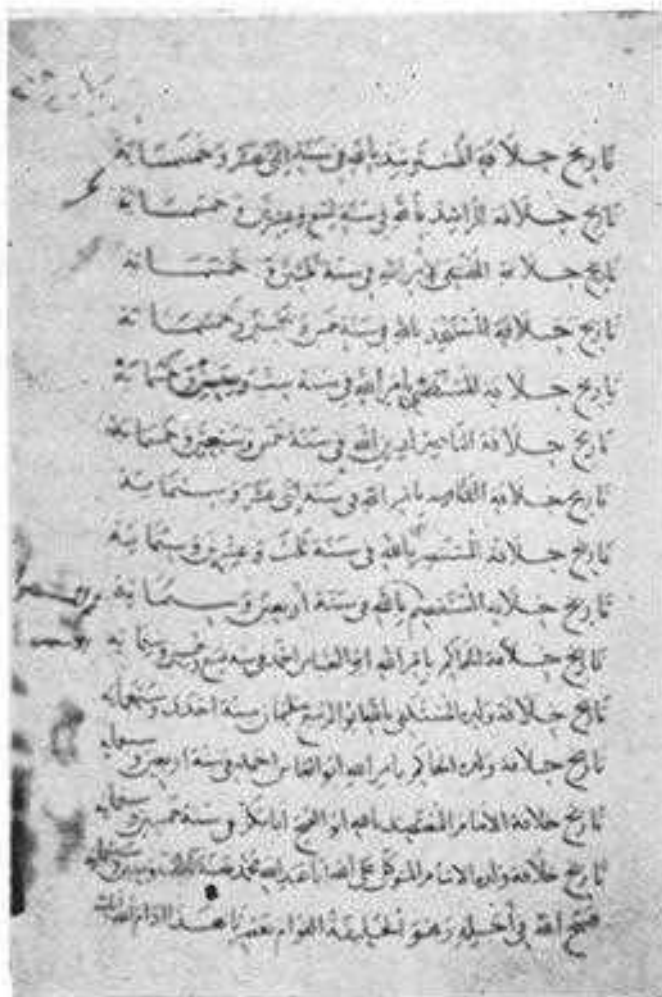 تاريخ خلافة المسترشد بالله في سنة اثني عشر وخمسمائة
تاريخ خلافة الراشد بالله في سنة تسع وعشرين وخمسمائة
تاريخ خلافة المقتفي لأمر الله في سنة ثلثين وخمسمائة
تاريخ خلافة المستنجد بالله في سنة خمس وخمسين وخمسمائة
تاريخ خلافة المستضئ بأمر الله في سنة ست وستين وخمسمائة
تاريخ خلافة الناصر لدين الله في سنة خمس وسبعين وخمسمائة
تاريخ خلافة الظاهر بأمر الله في سنة اثني عشر وستمائة
تاريخ خلافة المستنصر بالله في سنة ثلث وعشرين وستمائة
تاريخ خلافة المستعصم بالله في سنة أربعين وستمائة
تاريخ خلافة الحاكم بأمر الله ابو العباس احمد في سنة وستمائة
تاريخ خلافة ولده المستكفي بالله ابو الربيع سليمان سنة احدى وسبعمائة
تاريخ خلافة ولده الحاكم بأمر الله ابو العباس احمد في سنة اربعين وسبعمائة
تاريخ خلافة الامام المعتضد بالله ابو الفتح ابا بكر في سنة خمسين وسبعمائة
تاريخ خلافة ولده الامام المتوكل على الله ابا عبد الله محمد سنة ثلث وستين وسبعمائة
فسح الله في أجله وهو الخليفة